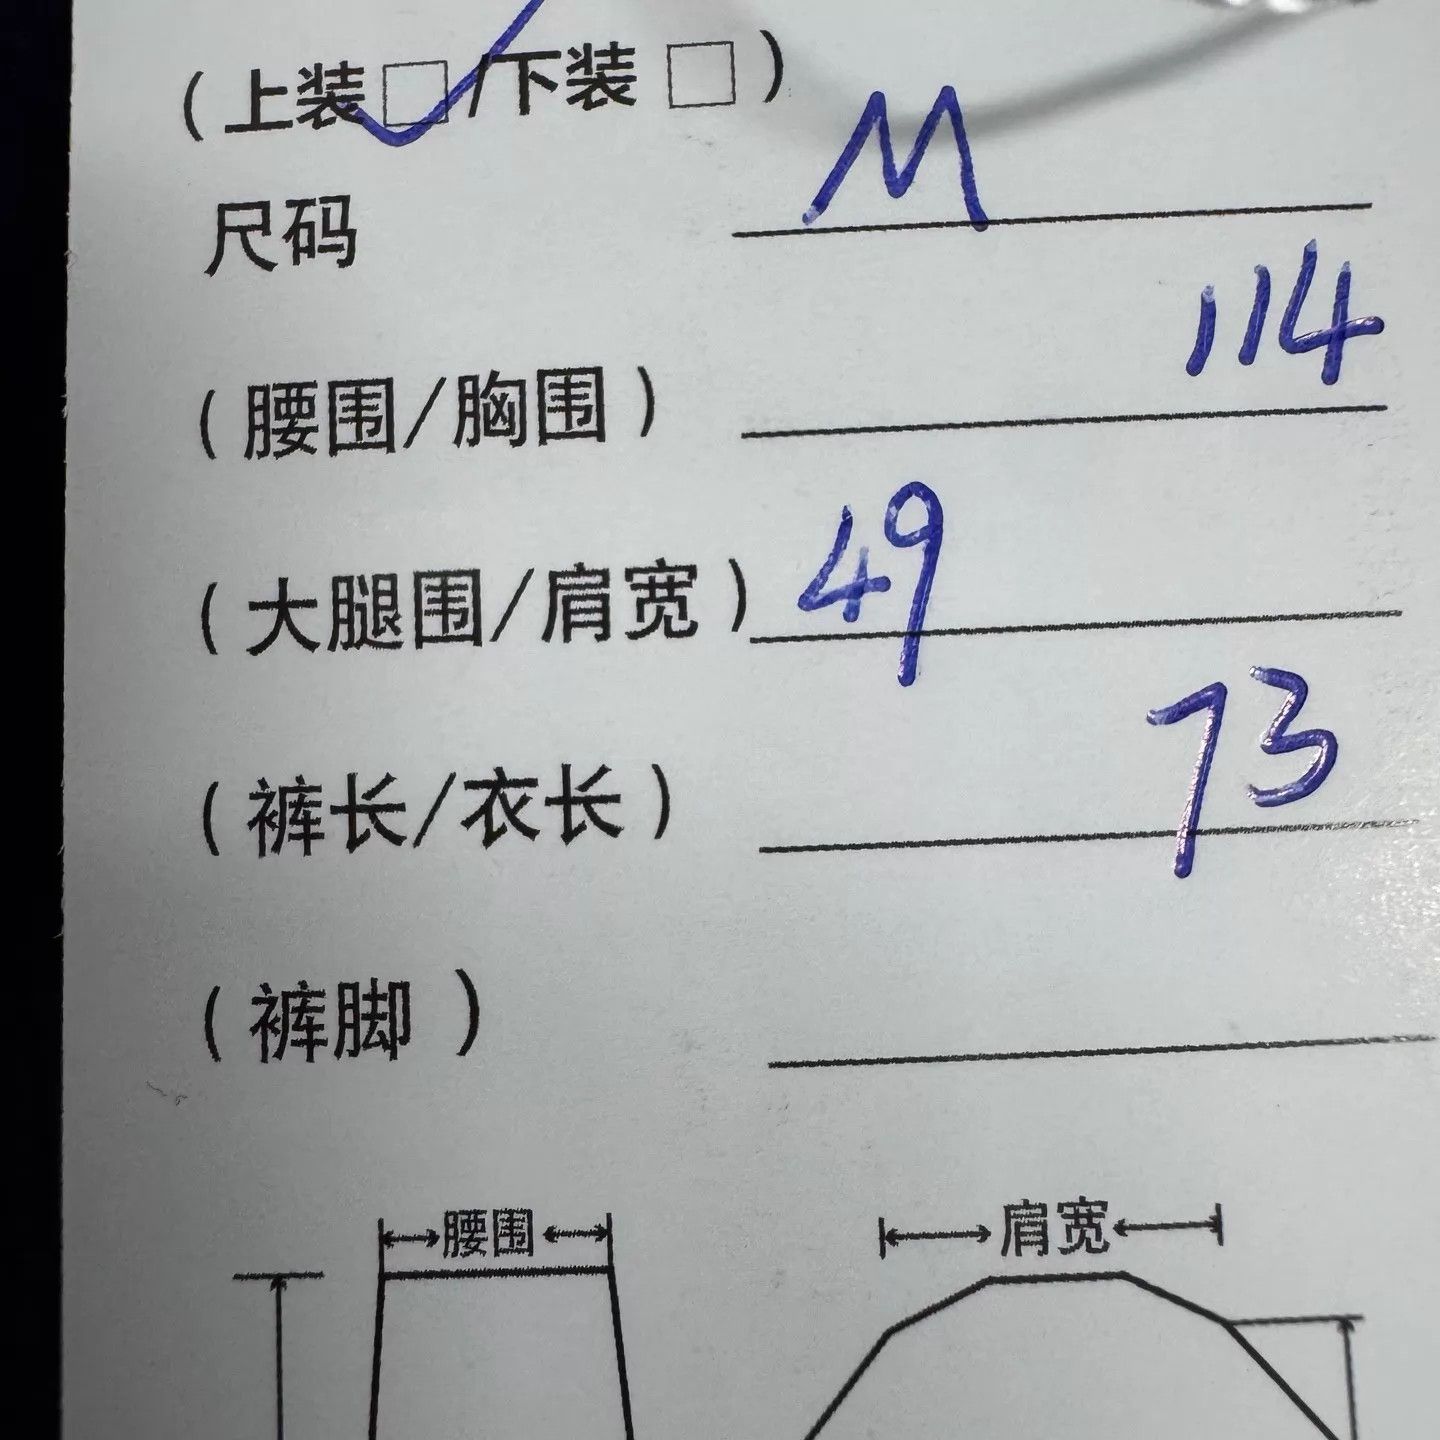 (上装□/下装□)
尺码 M
(腰围/胸围) 114
(大腿围/肩宽) 49
(裤长/衣长) 73
(裤脚)
腰围 肩宽